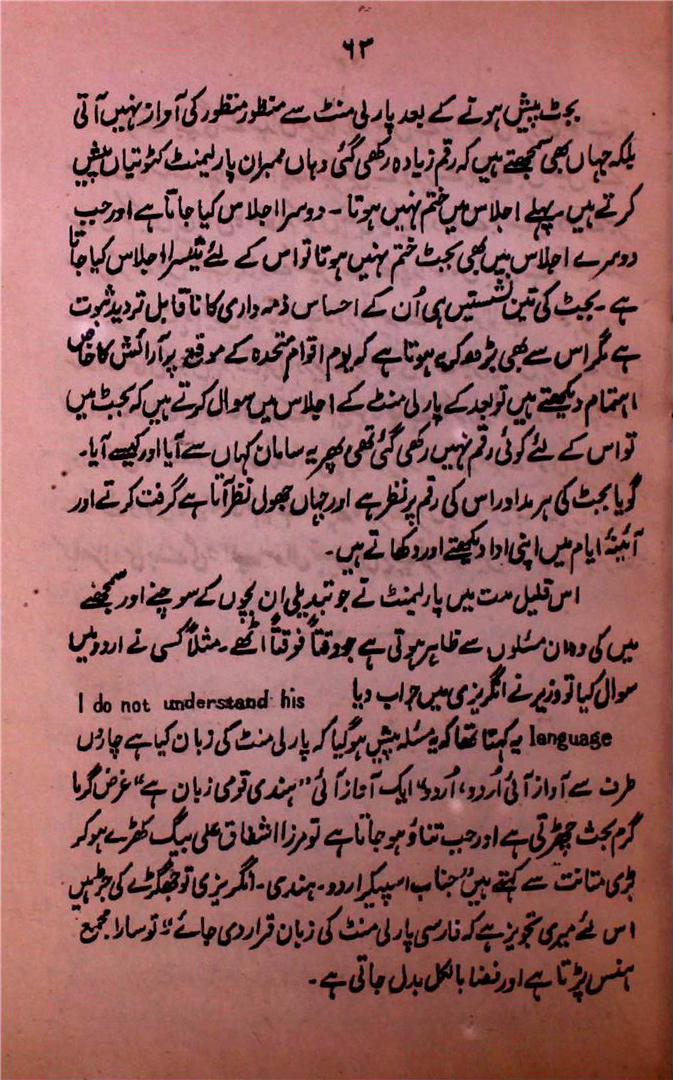 ۶۳
بجٹ پیش ہوتے کے بعد پارلی منٹ سے منظور منظور کی آواز نہیں آتی
بلکہ جہاں بھی سمجھتے ہیں کہ رقم زیادہ رکھی گئی وہاں ممبران پارلیمنٹ کٹوتیاں پیش
کرتے ہیں۔ پہلے اجلاس میں ختم نہیں ہوتا ۔ دوسرا اجلاس کیا جاتا ہے اور جب
دوسرے اجلاس میں بھی بجٹ ختم نہیں ہوتا تو اس کے لئے تیسرا اجلاس کیا جاتا
ہے ۔ بجٹ کی تین نشستیں ہی اُن کے احساس ذمہ داری کا ناقابل تردید ثبوت
ہے مگر اس سے بھی بڑھ کر یہ ہوتا ہے کہ یوم اقوام متحدہ کے موقع پر آرائش کا خاص
اہتمام دیکھتے ہیں تو بعد کے پارلی منٹ کے اجلاس میں سوال کرتے ہیں کہ بجٹ میں
تو اس کے لئے کوئی رقم نہیں رکھی گئی تھی پھر یہ سامان کہاں سے آیا اور کیسے آیا۔
گویا بجٹ کی ہر مد اور اس کی رقم پر نظر ہے اور جہاں جھول نظر آتا ہے گرفت کرتے اور
آئینۂ ایام میں اپنی ادا دیکھتے اور دکھاتے ہیں ۔
اس قلیل مدت میں پارلیمنٹ نے جو تبدیلی ان بچوں کے سوچنے اور سمجھنے
میں کی وہ ان مسئلوں سے ظاہر ہوتی ہے جو وقتاً فوقتاً اٹھے ۔ مثلاً کسی نے اردو میں
سوال کیا تو وزیر نے انگریزی میں جواب دیا I do not understand his
language یہ کہنا تھا کہ یہ مسئلہ پیش ہوگیا کہ پارلی منٹ کی زبان کیا ہے چاروں
طرف سے آواز آئی اُردو، اُردو" ایک آواز آئی "ہندی قومی زبان ہے" غرض گرما
گرم بحث چھڑتی ہے اور جب تناؤ ہو جاتا ہے تو مرزا اشفاق علی بیگ کھڑے ہو کر
بڑی متانت سے کہتے ہیں "جناب اسپیکر اردو ۔ ہندی ۔ انگریزی تو جھگڑے کی جڑ ہیں
اس لئے میری تجویز ہے کہ فارسی پارلی منٹ کی زبان قرار دی جائے" تو سارا مجمع
ہنس پڑتا ہے اور فضا بالکل بدل جاتی ہے ۔